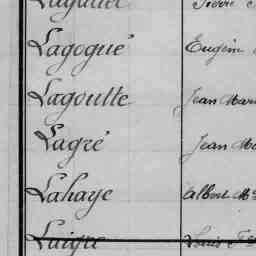 Lagogué Eugèn
Lagoutte Jean Mari
Lagré Jean Ma
Lahaye Albert M
Laigre Louis